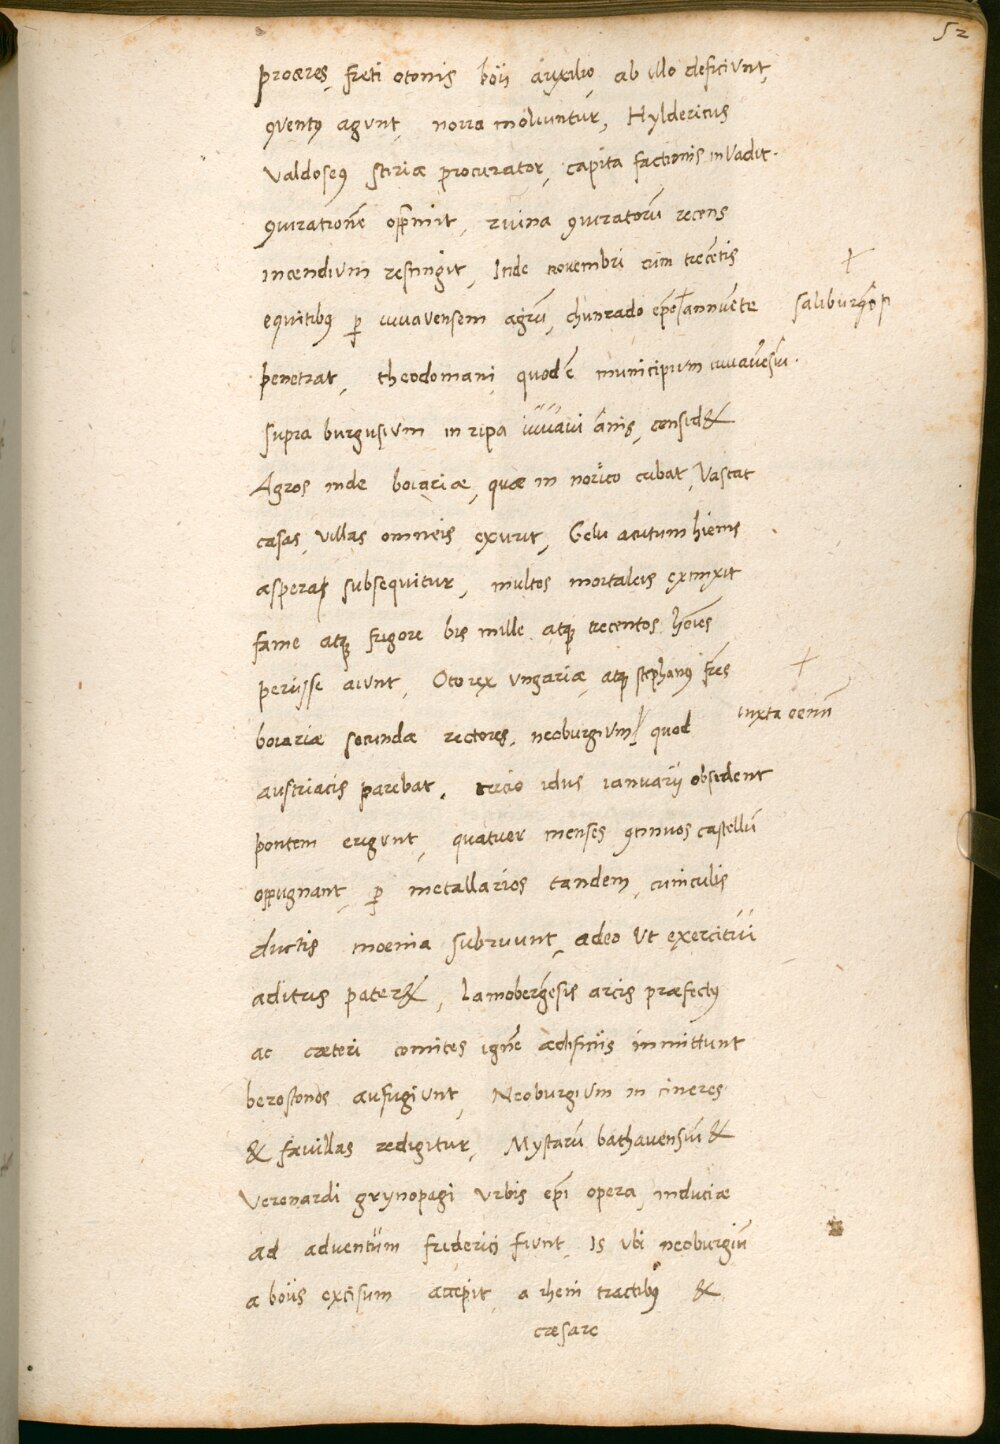 52
proceres, freti otonis boii auxilio, ab illo deficiunt,
ꝯventꝰ agunt, nova moliuntur, Hyldericus
Valdoseꝰ stiriæ procurator, capita factionis invadit.
ꝯiurationē opp̄mit, ruina ꝯiuratorū recens
incendium restingit, Inde novembri cum trecētis
equitibꝰ ꝑ iuvavensem agrū, chunrado ep̄o + annuēte
+ saliburgēsi
penetrat, theodomani quod ē municipium iuvavēsiū.
supra burgusium in ripa iuvavi āmis, consid&
Agros inde boiariæ, quæ in norico cubat, Vastat
casas, villas omneis exurit, Gelu acutum hiems
asperaꝗ subsequitur, multos mortaleis extinxit
fame atqꝫ frigore bis mille atqꝫ trecentos hōies
perijsse aiunt, Oto rex ungariæ, atqꝫ stephanꝰ fr̄es
boiariæ secundæ rectores, neoburgium quod
+ iuxta oenū
austriacis parebat, tercio idus ianuarij obsident
pontem erigunt, quatuor menses ꝯtinuos castellū
oppugnant, ꝑ metallarios tandem, cuniculis
ductis moenia subruunt, adeo ut exercitui
aditus pater&, Lamobergēsis arcis præfectꝰ
ac cæteri comites ignē ædificiis inmittunt
berostonos aufugiunt, Neoburgium in cineres
& favillas redigitur, Mystarū bathavensiū &
Verenardi grynopagi urbis ep̄i opera, induciæ
ad adventum friderici fiunt, Is ubi neoburgiū
a boiis excisum accepit, a rheni tractibꝰ &
cæsare